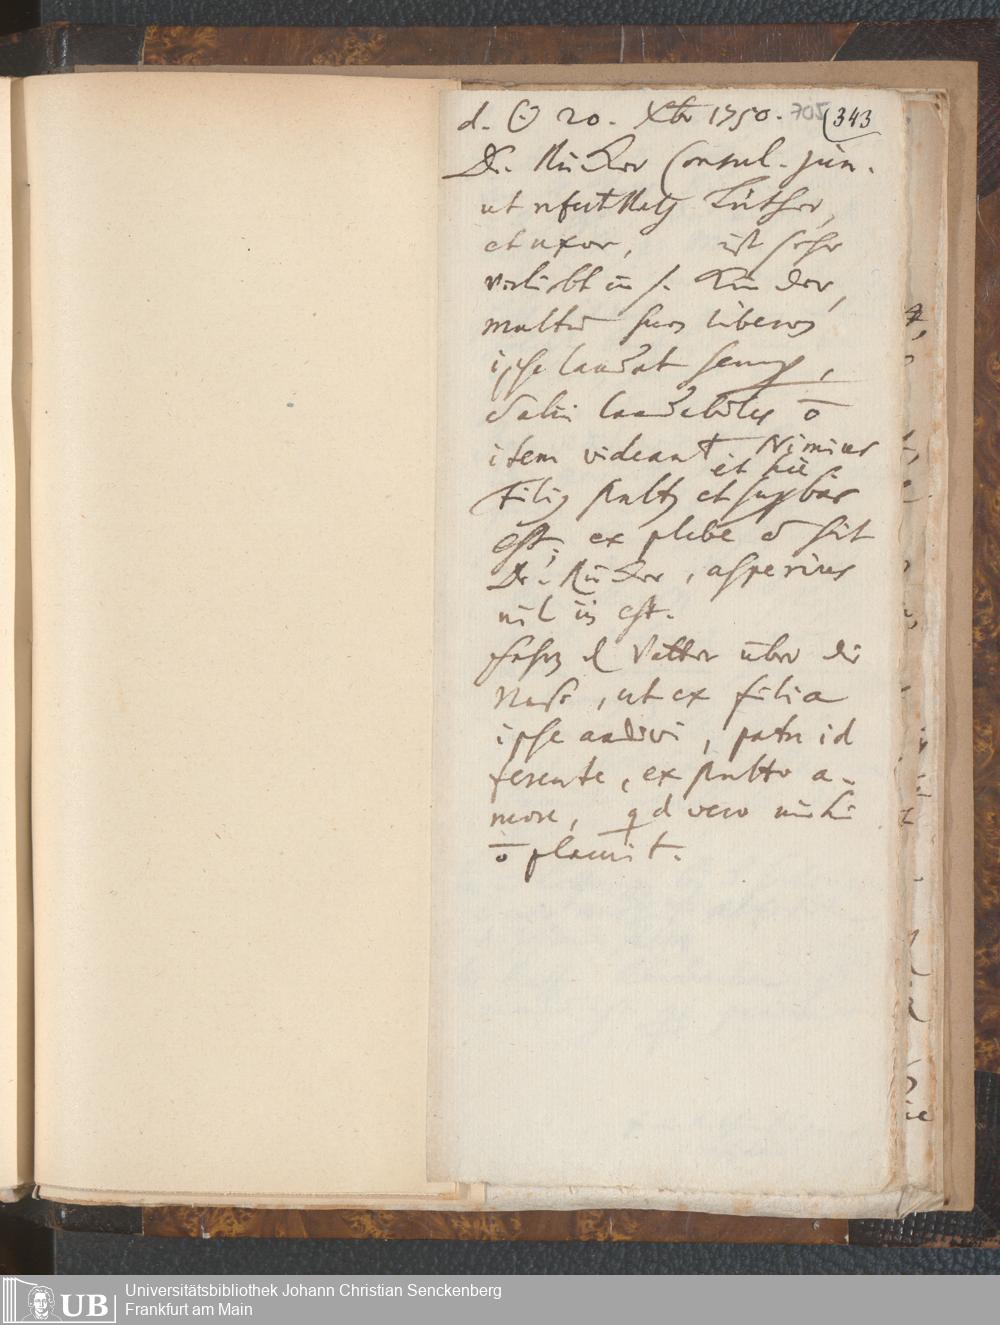 d. ☉ 20. Xbr 1750. 705 (343
Dr. Rücker Consul. jun.
ut Luther,
et uxor, ist sehr
verliebt in s. Kinder,
multum suos liberos
ipse laudat semp,
alii ō
item videant Nimius
et
Filiq stultq et
est, ex plebe sit
Dr. Rücker, asperius
nil est.
Vatter über die
Nase, ut ex filia
ipse audivi, patre id
ferente, ex stulto a-
more, qd vero mihi
ō placuit.
Universitätsbibliothek Johann Christian Senckenberg
Frankfurt am Main
UB